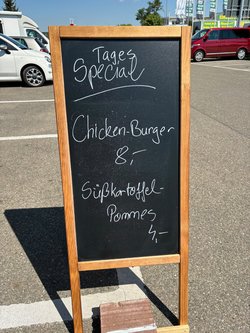 Tages
Special
Chicken-Burger
8,-
Süßkartoffel-
Pommes
4,-